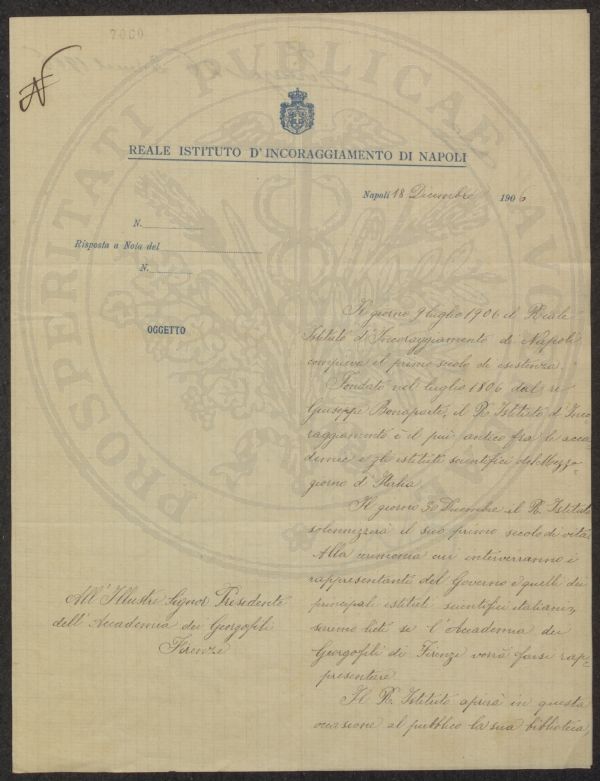 7000
REALE ISTITUTO D'INCORAGGIAMENTO DI NAPOLI
Napoli 18 Dicembre 1906
N.
Risposta a Nota del
N.
OGGETTO
Il giorno 9 luglio 1906 il Reale
Istituto d'Incoraggiamento di Napoli
compieva il primo secolo di esistenza.
Fondato nel luglio 1806 dal re
Giuseppe Bonaparte, il R. Istituto d'Inco
raggiamento è il più antico fra le acca
demie e gli istituti scientifici del Mezzo-
giorno d'Italia.
Il giorno 30 Dicembre il R. Istituto
solennizzerà il suo primo secolo di vita.
Alla cerimonia cui interverranno i
rappresentanti del Governo e quelli dei
principali istituti scientifici italiani,
saremo lieti se l'Accademia dei
Georgofili di Firenze vorrà farsi rap-
presentare.
Il R. Istituto aprirà in questa
occasione al pubblico la sua biblioteca,
All'Illustre Signor Presidente
dell'Accademia dei Georgofili
Firenze
PROSPERITATI PUBLICAE